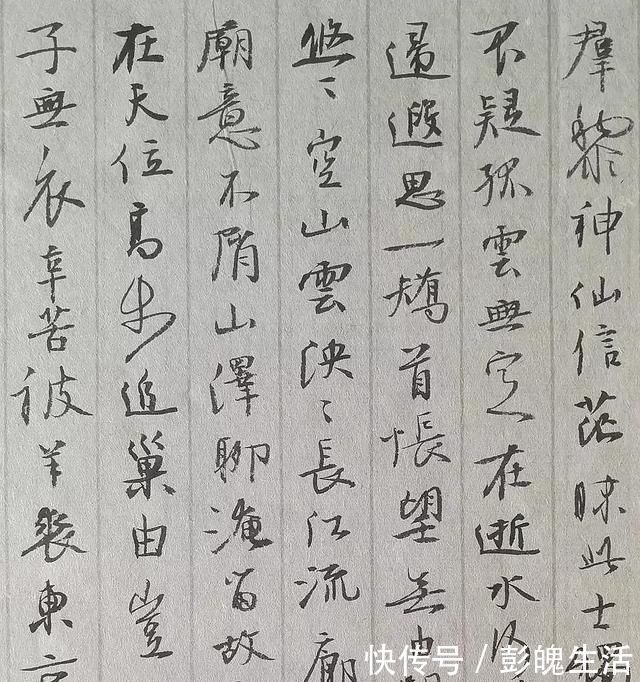 羣黎神仙信茫昧此士
不疑孤雲無定在逝水
遺遐思一矯首悵望無由
悠〻空山雲泱〻長江流廊
廟意不屑山澤聊淹留故
在天位高步追巢由豈
子無衣辛苦被羊裘東京
快传号 / 彭魄生活